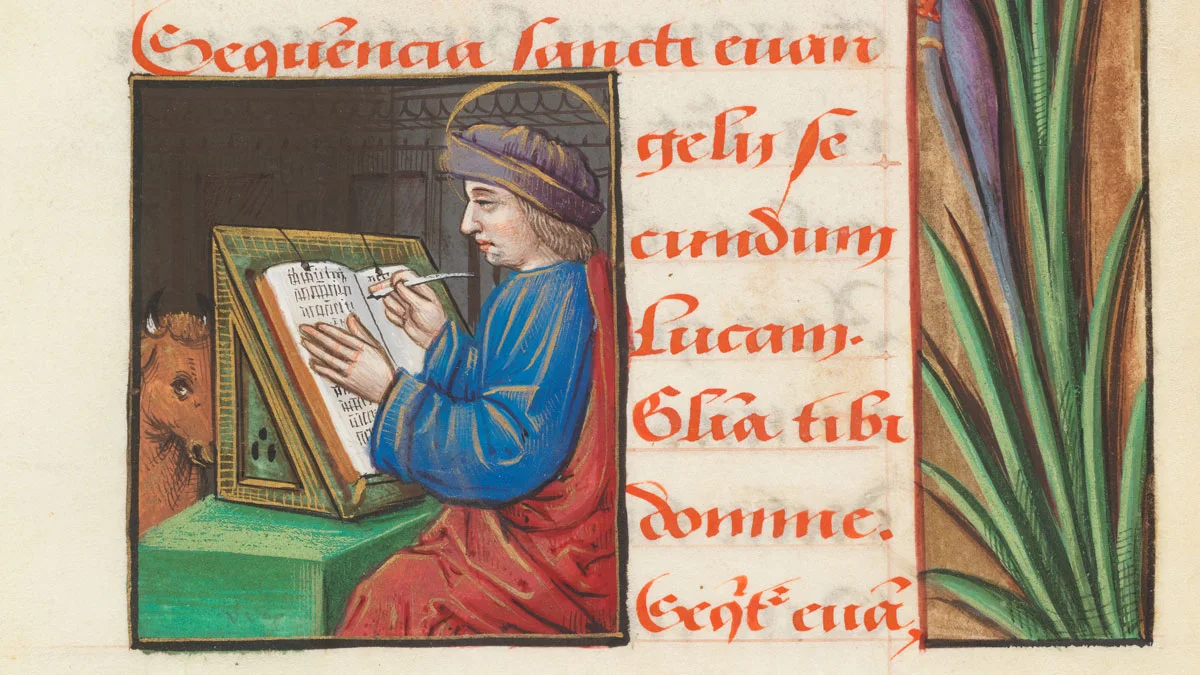 Sequēncia sancti euan
gelii se
cundum
Lucam.
Gl̄ia tibi
domine.